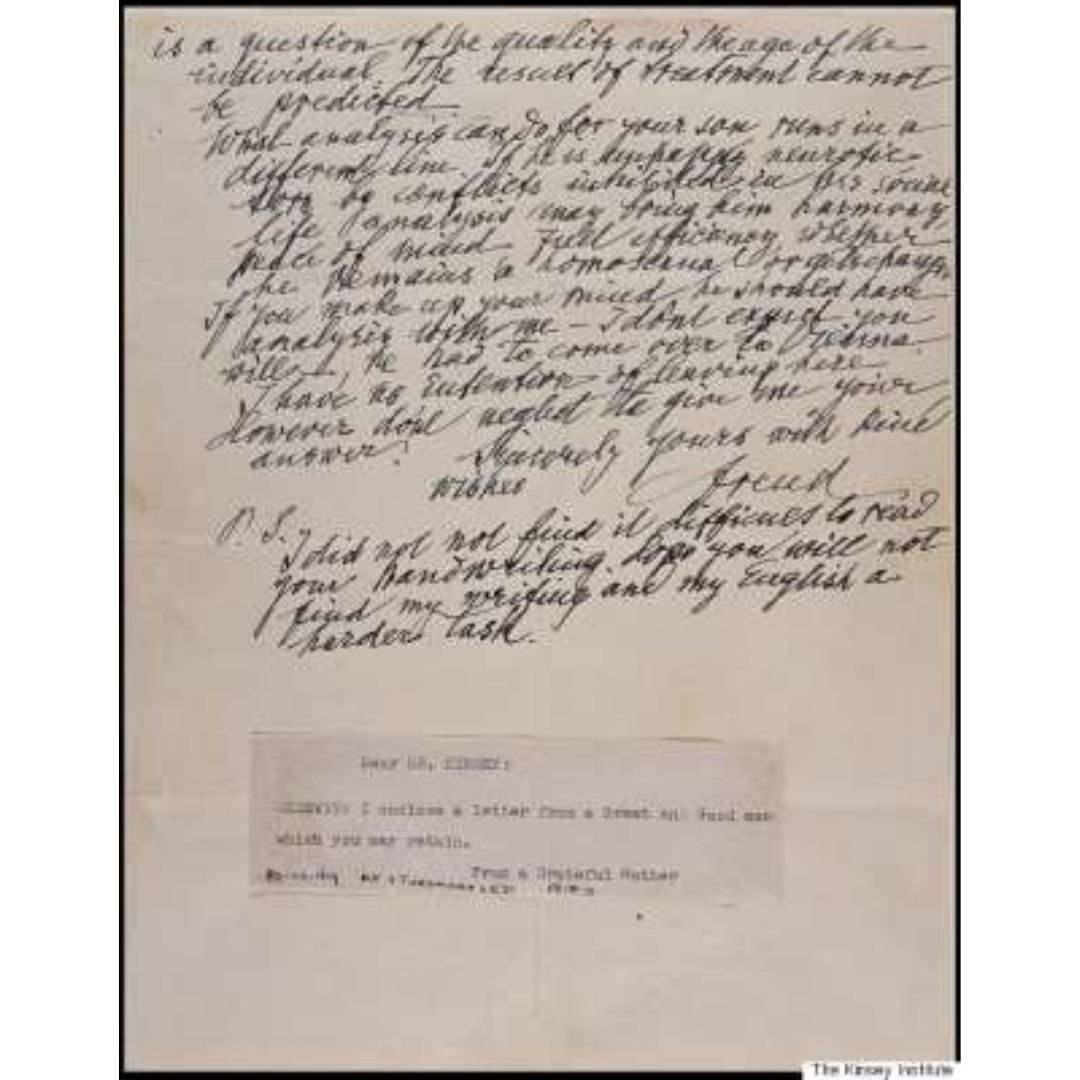 is a question of the quality and the age of the
individual. The result of treatment cannot
be predicted.
What analysis can do for your son runs in a
different line. If he is unhappy neurotic
torn by conflicts inhibited in his social
life analysis may bring him harmony
peace of mind full efficiency whether
he remains a homosexual or gets changed
If you make up your mind he should have
analysis with me – I dont expect you
will –, he had to come over to Vienna.
I have no intention of leaving here.
However dont neglect to give me your
answer.
Sincerely yours with kind
wishes
Freud
P. S.
I did not not find it difficult to read
your handwriting. Hope you will not
find my writing and my English a
harder task.
Dear Dr. KINSEY:
Herewith I enclose a letter from a Great and Good man
which you may retain.
From a Grateful Mother
The Kinsey Institute